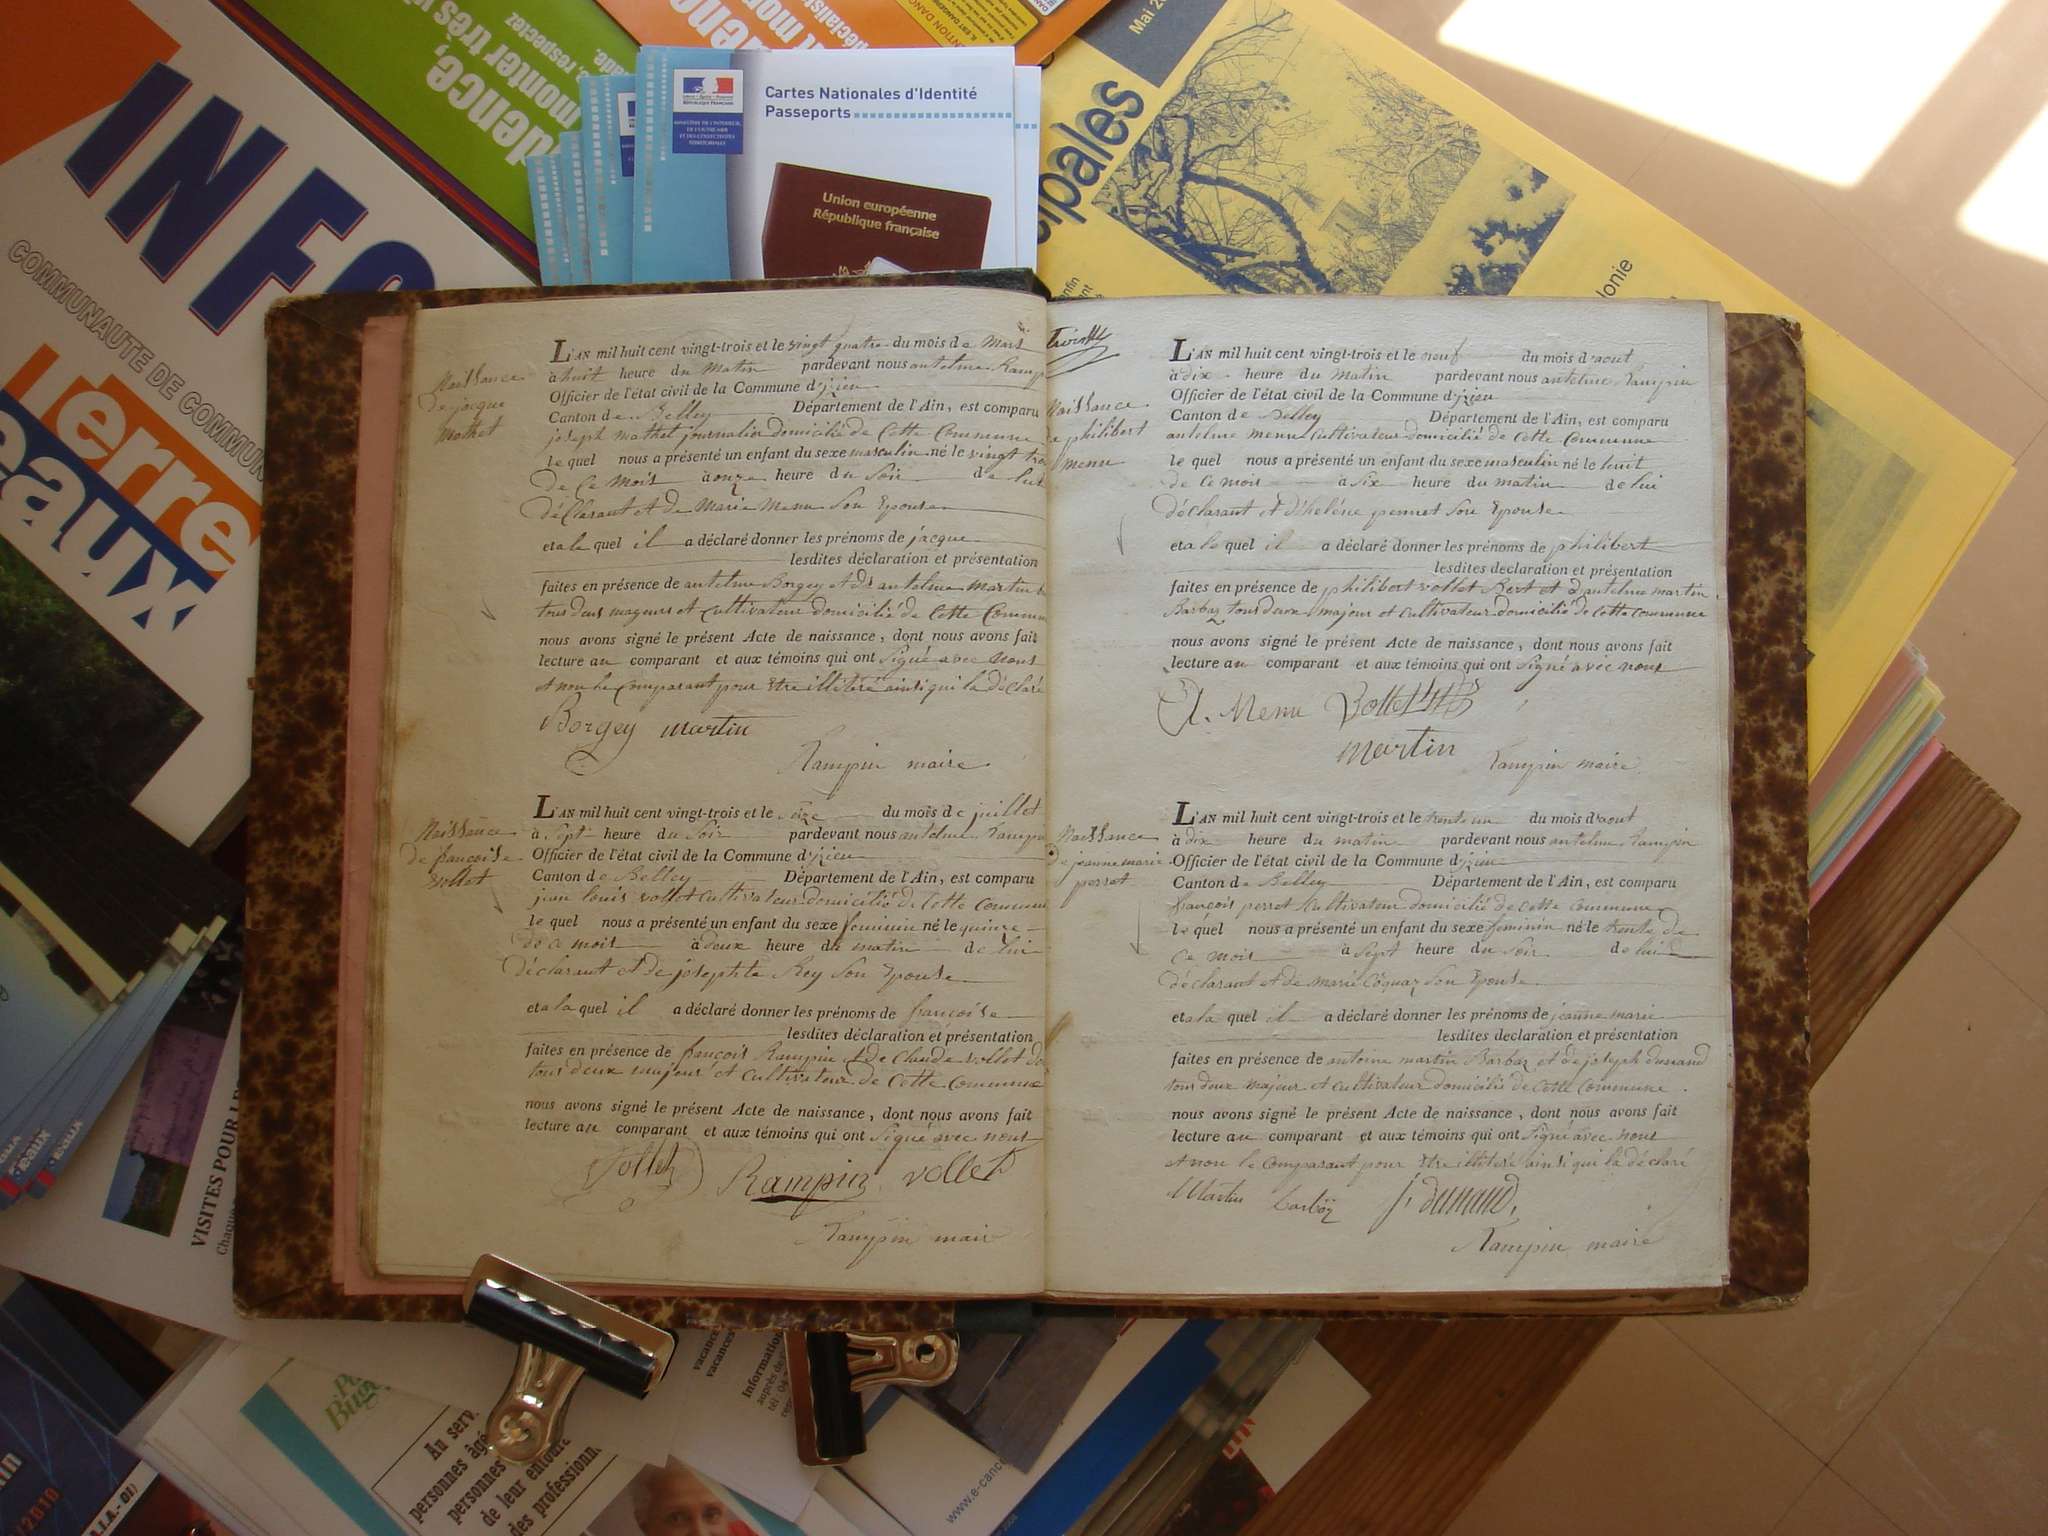 INFO
COMMUNAUTE DE COMMUN
Terre
eaux
dence,
monter très vi
, respectez
Cartes Nationales d'Identité
Passeports
RÉPUBLIQUE FRANÇAISE
MINISTÈRE DE L'INTÉRIEUR,
DE L'OUTRE-MER
ET DES COLLECTIVITÉS
TERRITORIALES
Union européenne
République française
Mai 20
cipales
lonie
Naissance
de jacque
Mathet
L'AN mil huit cent vingt-trois et le vingt quatre du mois de Mars
à huit heure du Matin pardevant nous antelme Ramp
Officier de l'état civil de la Commune d'jzieu
Canton de Belley Département de l'Ain, est comparu
joseph mathet journalier domicilié de Cette Commune
le quel nous a présenté un enfant du sexe masculin né le vingt tro
de Ce Mois à onze heure du Soir de lui
déclarant et de Marie Menu Son Epouse
et a le quel il a déclaré donner les prénoms de jacque
lesdites déclaration et présentation
faites en présence de antelme Borgey et de antelme Martin
tous deux majeurs et cultivateur domicilié de Cette Commun
nous avons signé le présent Acte de naissance, dont nous avons fait
lecture au comparant et aux témoins qui ont Signé avec Nous
et non le Comparant pour Etre illitéré ainsi qui la déclaré
Borgey martin
Rampin maire
Naissance
de françoise
vollet
L'AN mil huit cent vingt-trois et le Seize du mois de juillet
à Sept heure du Soir pardevant nous antelme Rampin
Officier de l'état civil de la Commune d'jzieu
Canton de Belley Département de l'Ain, est comparu
jean louis vollet cultivateur domicilié de Cette Commune
le quel nous a présenté un enfant du sexe féminin né le quinze
de ce mois à deux heure du matin de lui
déclarant et de josephte Rey Son Epouse
et a la quel il a déclaré donner les prénoms de françoise
lesdites déclaration et présentation
faites en présence de françois Rampin et de Claude vollet
tous deux majeur et cultivateur de Cette Commune
nous avons signé le présent Acte de naissance, dont nous avons fait
lecture au comparant et aux témoins qui ont Signé avec nous
Vollet Rampin vollet
Rampin mair
Naissance
philibert
menu
L'AN mil huit cent vingt-trois et le neuf du mois d'aout
à dix heure du matin pardevant nous antelme Rampin
Officier de l'état civil de la Commune d'jzieu
Canton de Belley Département de l'Ain, est comparu
antelme menu cultivateur domicilié de Cette Commune
le quel nous a présenté un enfant du sexe masculin né le huit
de Ce mois à Six heure du matin de lui
déclarant et d'heléne pennet Son Epouse
et a le quel il a déclaré donner les prénoms de philibert
lesdites déclaration et présentation
faites en présence de philibert vollet Bert et d'antelme martin
Barbaz tous deux majeur et cultivateur domicilié de cette commune
nous avons signé le présent Acte de naissance, dont nous avons fait
lecture au comparant et aux témoins qui ont Signé avec nous
A. Menu Vollet
martin Rampin maire
Naissance
de jeanne marie
perret
L'AN mil huit cent vingt-trois et le trente un du mois d'aout
à dix heure du matin pardevant nous antelme Rampin
Officier de l'état civil de la Commune d'jzieu
Canton de Belley Département de l'Ain, est comparu
françois perret Cultivateur domicilié de cette commune
le quel nous a présenté un enfant du sexe féminin né le trente de
Ce mois à Sept heure du Soir de lui
déclarant et de marie Coquaz Son Epouse
et a la quel il a déclaré donner les prénoms de jeanne marie
lesdites déclaration et présentation
faites en présence de antoine martin Barbaz et de joseph dunand
tous deux majeur et cultivateur domicilié de Cette Commune
nous avons signé le présent Acte de naissance, dont nous avons fait
lecture au comparant et aux témoins qui ont Signé avec nous
et non le Comparant pour Etre illitéré ainsi qui la déclaré
Martin barbaz j. dunand
Rampin maire
VISITES POUR
Au serv
personnes âg
personnes
de leur entour
des professionn
vacances
Information
www.e-cance
2010